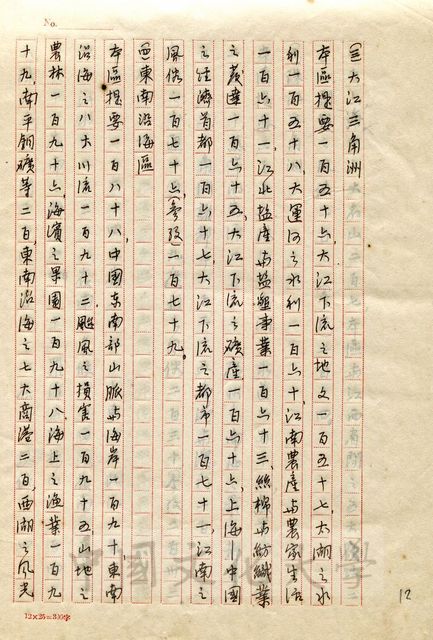 No.
(三)大江三角洲
本區提要一百五十六,大江下流之地文一百五十七,太湖之水
利一百五十八,大運河之水利一百六十,江南農產与農家生活
一百六十一,江北鹽產与鹽墾事業一百六十三,絲棉与紡織業
之發達一百六十五,大江下流之礦產一百六十六,上海—中國
之經濟首都一百六十七,大江下流之都市一百七十一,江南之
風俗一百七十六,(參改)一百七十九。
(四)東南沿海區
本區提要一百八十八,中國東南部山脈与海岸一百九十,東南
沿海之八大川流一百九十二,颱風之損害一百九十五,山地之
農林一百九十六,海濱之果園一百九十八,海上之漁業一百九
十九,南平銅礦等二百,東南沿海之七大商港二百,西湖之風光
12
12×25=300字
中國文化大學